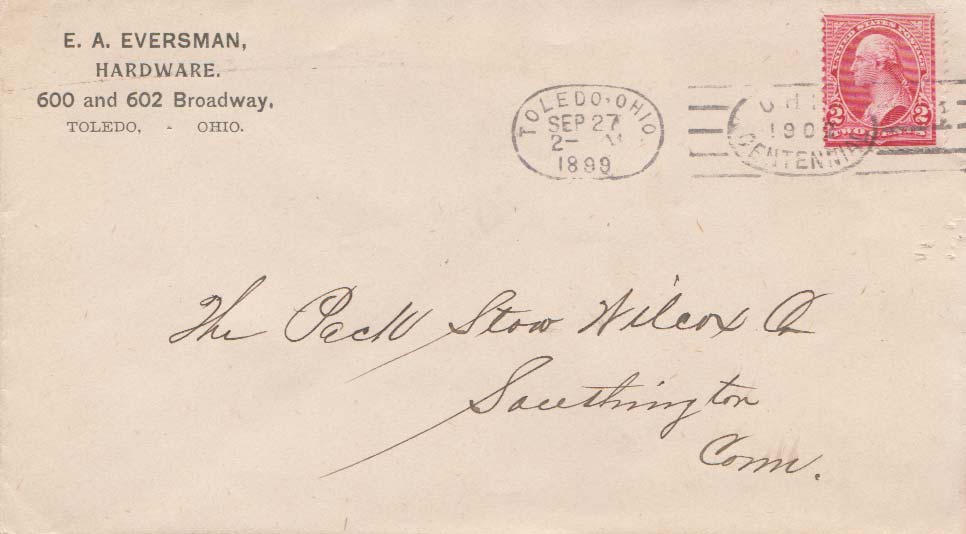 E. A. EVERSMAN,
HARDWARE.
600 and 602 Broadway,
TOLEDO, - OHIO.
TOLEDO, OHIO
SEP 27
2-
1899
CENTENNIAL
UNITED STATES POSTAGE
2 2
The Peck Stow Wilcox Co
Southington
Conn.